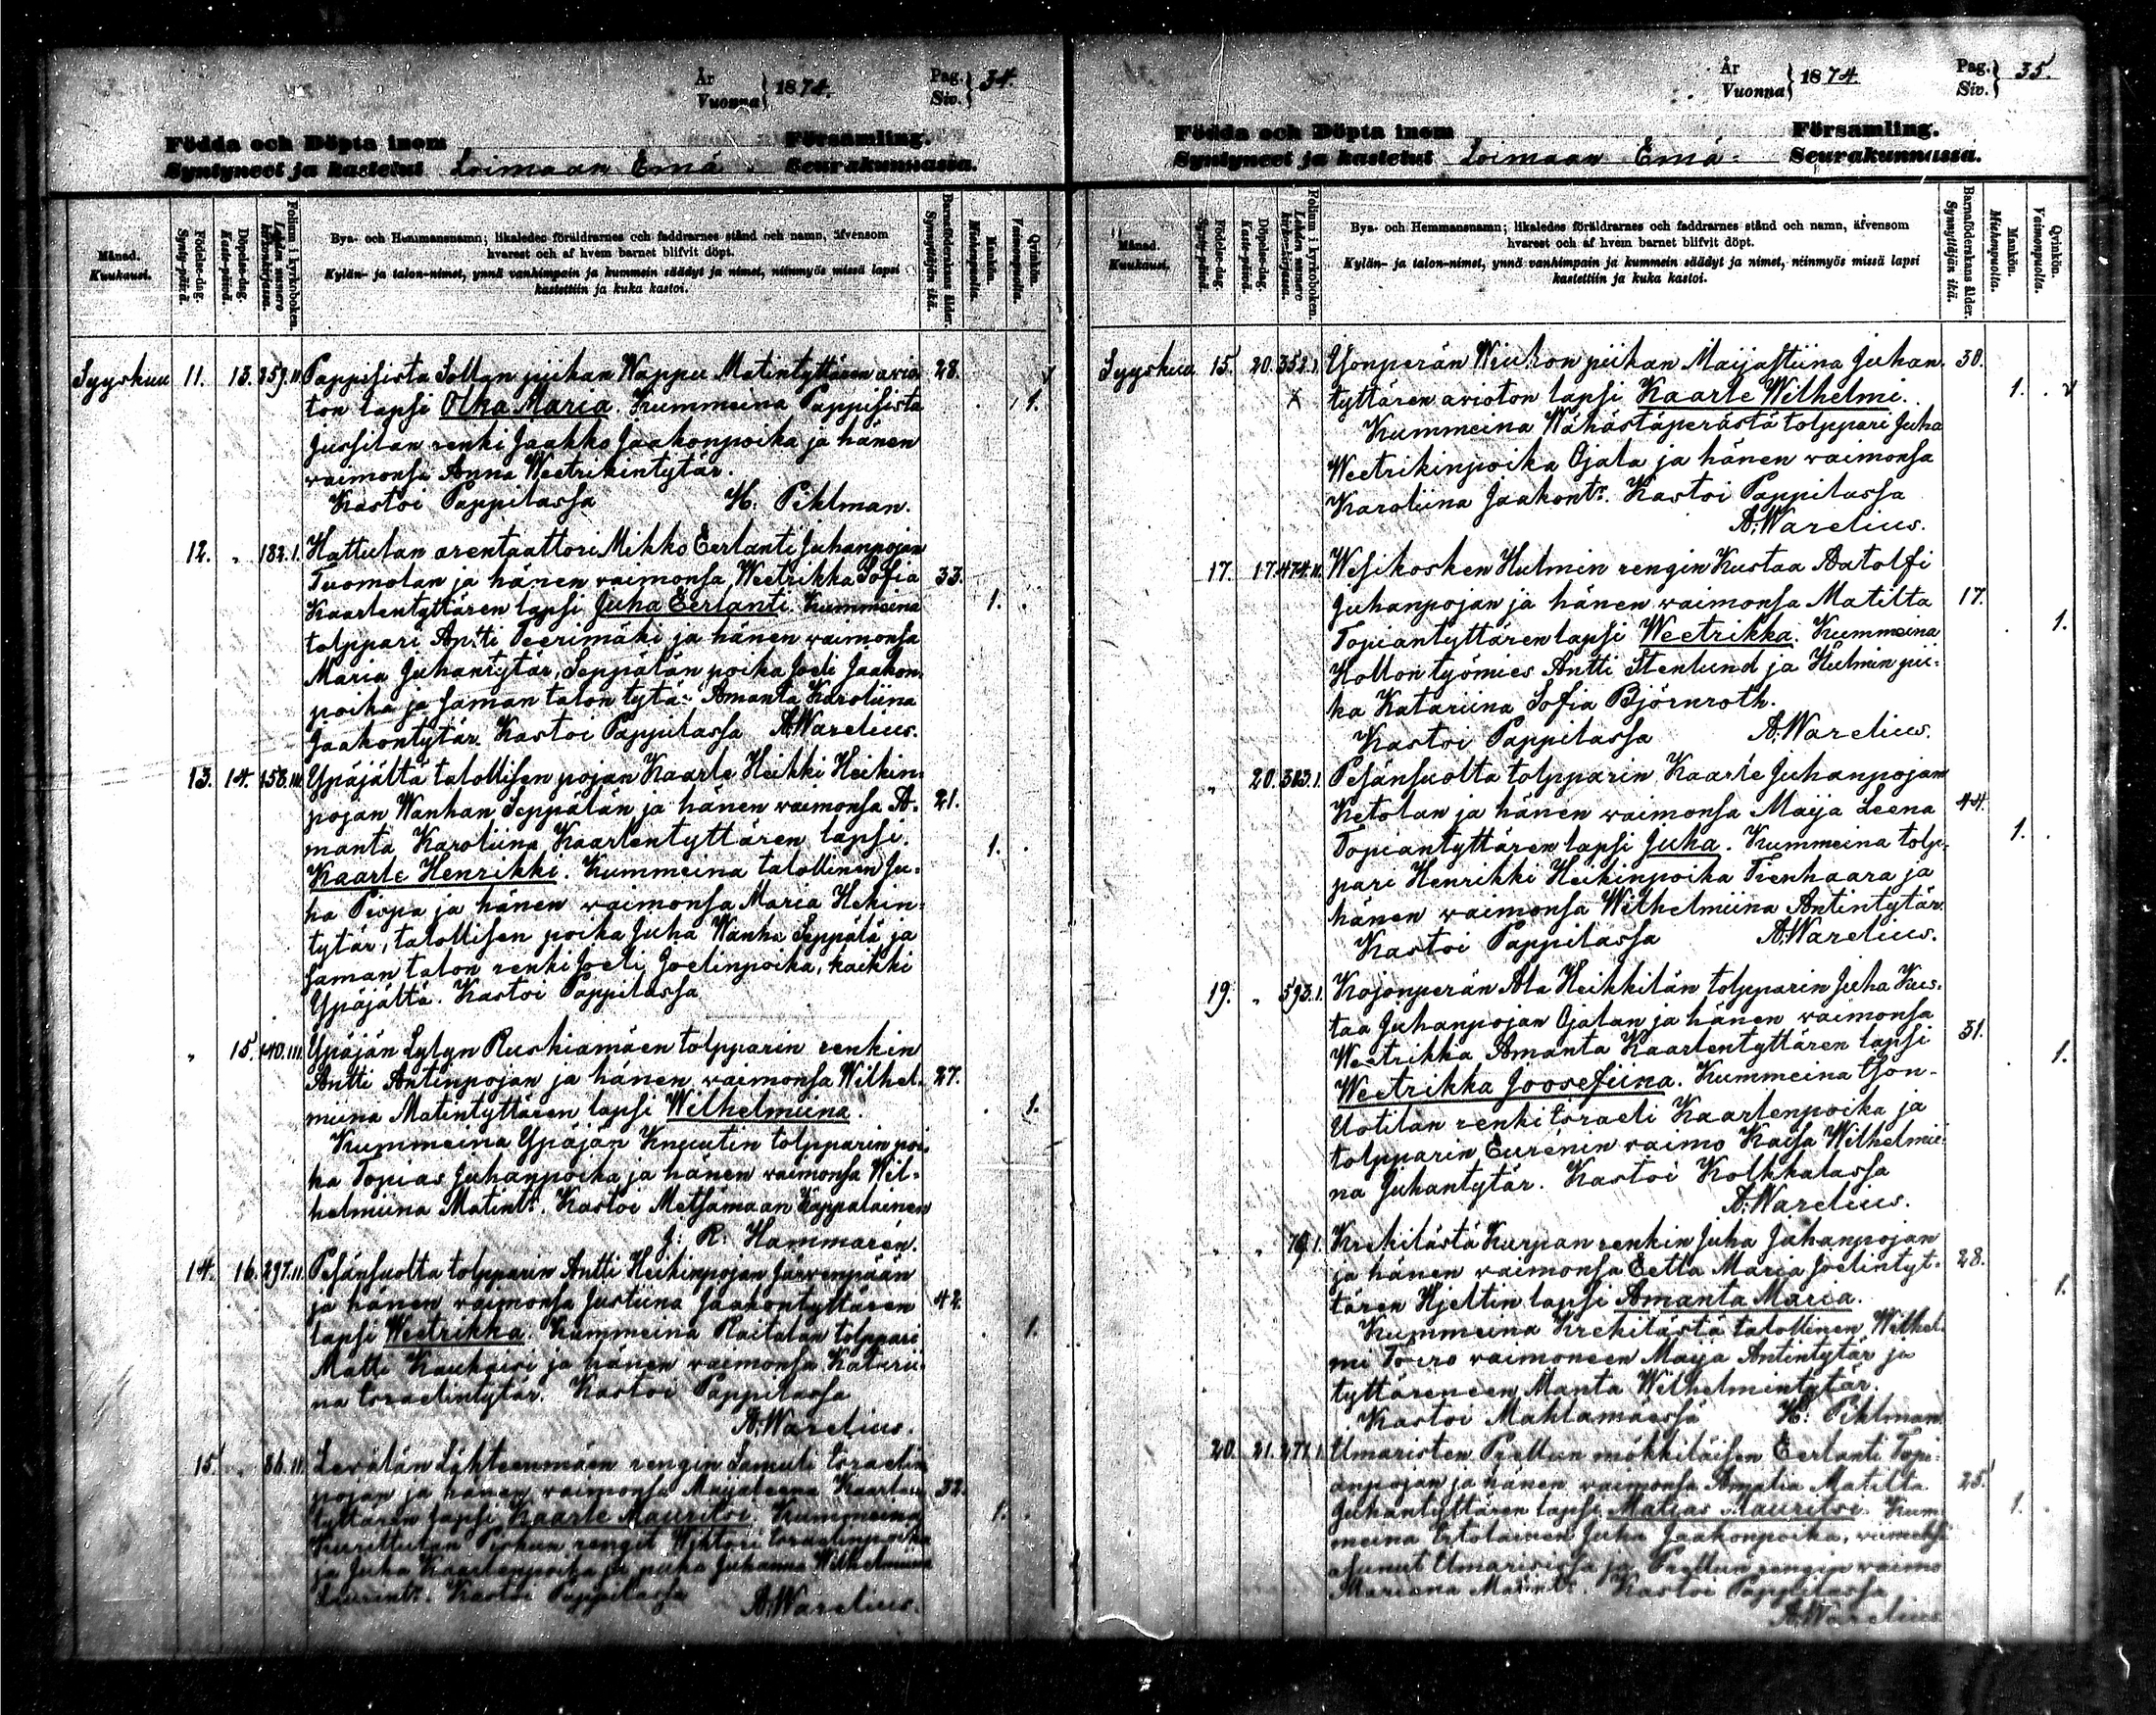 År
Vuonna } 1874.
Pag.
Siv. } 34.
Födda och Döpta inom Församling.
Syntyneet ja kastetut Loimaan Emä Seurakunnassa.
Månad.
Kuukausi.
Födelse-dag.
Synty-päivä.
Döpelse-dag.
Kaste-päivä.
Folium i kyrkoboken.
Lehden numero kirkonkirjassa.
Bya- och Hemmansnamn; likaledes föräldrarnes och faddrarnes stånd och namn, äfvensom
hvarest och af hvem barnet blifvit döpt.
Kylän- ja talon-nimet, ynnä vanhimpain ja kummein säädyt ja nimet, niinmyös missä lapsi
kastettiin ja kuka kastoi.
Barnaföderskans ålder.
Synnyttäjän ikä.
Mankön.
Miehenpuolta.
Qvinkön.
Vaimonpuolta.
Syyskuu 11. 13. 359.II. Pappisista Soltan piikan Wappu Matintyttären avio- 28.
ton lapsi Olka Maria. Kummeina Pappisista 1.
Jussilan renki Jaakko Jaakonpoika ja hänen
vaimonsa Anna Weetrikintytär.
Kastoi Pappilassa H. Pihlman.
12. „ 182.I. Hattulan arentaattori Mikko Eerlanti Juhanpojan
Tuomolan ja hänen vaimonsa Weetrikka Sofia 33.
Kaarlentyttären lapsi Juha Eerlanti. Kummeina 1.
tolppari Antti Teerimäki ja hänen vaimonsa
Maria Juhantytär, Seppälän poika Joeli Jaakon-
poika ja saman talon tytär Amanta Karoliina
Jaakontytär. Kastoi Pappilassa A. Warelius.
13. 14. 158.III. Ypäjältä talollisen pojan Kaarle Heikki Heikin-
pojan Wanhan Seppälän ja hänen vaimonsa A- 21.
manta Karoliina Kaarlentyttären lapsi 1.
Kaarle Henrikki. Kummeina talollinen Ju-
ha Piepa ja hänen vaimonsa Maria Heikin-
tytär, talollisen poika Juha Wanha Seppälä ja
saman talon renki Joeli Joelinpoika, kaikki
Ypäjältä. Kastoi Pappilassa
„ 15. 140.III. Ypäjän Lylyn Ruskiamäen tolpparin renkin
Antti Antinpojan ja hänen vaimonsa Wilhel- 27.
miina Matintyttären lapsi Wilhelmiina. 1.
Kummeina Ypäjän Knuutin tolpparin poi-
ka Topias Juhanpoika ja hänen vaimonsa Wil-
helmiina Matintr. Kastoi Metsämaan Kappalainen
J. R. Hammarén.
14. 16. 297.II. Pesänsuolta tolpparin Antti Heikinpojan Järvenpään
ja hänen vaimonsa Justiina Jaakontyttären 42.
lapsi Weetrikka. Kummeina Raitalan tolppari 1.
Matti Kaukavi ja hänen vaimonsa Katarii-
na Israelintytär. Kastoi Pappilassa
A. Warelius.
15. „ 86.II. Levälän Lähteenmäen rengin Samuli Israelin
pojan ja hänen vaimonsa Maijaleena Kaarlen 32.
tyttären lapsi Kaarle Mauritsi. Kummeina 1.
rengit Wihtori Israelinpoika
ja Juha Kaarlenpoika ja piika Juhanna Wilhelmiina
Kastoi Pappilassa A. Warelius.
År
Vuonna } 1874.
Pag.
Siv. } 35.
Födda och Döpta inom Församling.
Syntyneet ja kastetut Loimaan Emä- Seurakunnassa.
Månad.
Kuukausi.
Födelse-dag.
Synty-päivä.
Döpelse-dag.
Kaste-päivä.
Folium i kyrkoboken.
Lehden numero kirkonkirjassa.
Bya- och Hemmansnamn; likaledes föräldrarnes och faddrarnes stånd och namn, äfvensom
hvarest och af hvem barnet blifvit döpt.
Kylän- ja talon-nimet, ynnä vanhimpain ja kummein säädyt ja nimet, niinmyös missä lapsi
kastettiin ja kuka kastoi.
Barnaföderskans ålder.
Synnyttäjän ikä.
Mankön.
Miehenpuolta.
Qvinkön.
Vaimonpuolta.
Syyskuu 15. 20. 352.I. piikan Maijastiina Juhan- 30.
X tyttären avioton lapsi Kaarle Wilhelmi. 1.
Kummeina Wähästäperästä tolppari Juha
Weetrikinpoika Ojala ja hänen vaimonsa
Karoliina Jaakontr. Kastoi Pappilassa
A. Warelius.
17. 17. 474.II. Wesikosken Hulmin rengin Kustaa Aatolfi
Juhanpojan ja hänen vaimonsa Matilta 17.
Topiantyttären lapsi Weetrikka. Kummeina 1.
Kolton työmies Antti Stenlund ja Hulmin pii-
ka Katariina Sofia Björnroth.
Kastoi Pappilassa A. Warelius.
„ 20. 313.I. Pesänsuolta tolpparin Kaarle Juhanpojan
Ketolan ja hänen vaimonsa Maija Leena 44.
Topiantyttären lapsi Juha. Kummeina tolp- 1.
pari Henrikki Heikinpoika Tienhaara ja
hänen vaimonsa Wilhelmiina Antintytär.
Kastoi Pappilassa A. Warelius.
19. „ 593.I. Kojonperän Ala Heikkilän tolpparin Juha Kus-
taa Juhanpojan Ojalan ja hänen vaimonsa
Weetrikka Amanta Kaarlentyttären lapsi 31.
Weetrikka Joosefiina. Kummeina Yson- 1.
Uotilan renki Israeli Kaarlenpoika ja
tolpparin Eurénin vaimo Kaisa Wilhelmii-
na Juhantytär. Kastoi Kolkkalassa
A. Warelius.
„ „ 79.I. Krekilästä Kurpan renkin Juha Juhanpojan
ja hänen vaimonsa Eetla Maria Joelintyt- 28.
tären Hjeltin lapsi Amanta Maria. 1.
Kummeina Krekilästä talollinen Wilhel-
mi Toiro vaimoneen Maija Antintytär ja
tyttäreneen Manta Wilhelmintytär.
Kastoi Mahlamäessä H. Pihlman.
20. 21. 277.I. Umaristen Prellun mökkiläisen Eerlanti Topi-
anpojan ja hänen vaimonsa Amalia Matilta 25.
Juhantyttären lapsi Matias Mauritsi. Kum- 1.
meina Itsellinen Juha Jaakonpoika,
asunut Umarisissa ja Prellun rengin vaimo
Kastoi Pappilassa
A. Warelius.